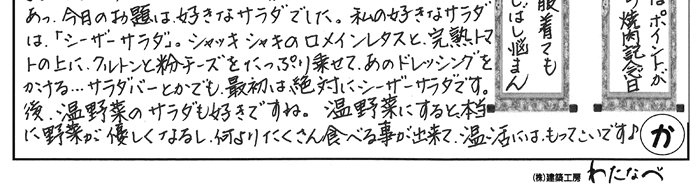 あっ、今月のお題は、好きなサラダでした。私の好きなサラダ
は、「シーザーサラダ」。シャッキシャキのロメインレタスと、完熟トマ
トの上に、クルトンと粉チーズをたっぷり乗せて、あのドレッシングを
かける…サラダバーとかでも、最初は絶対にシーザーサラダです。
後、温野菜のサラダも好きですね。温野菜にすると、本当
に野菜が、優しくなるし、何よりたくさん食べる事が出来て、温活には、もってこいです♪
か
服着ても
じばし悩まん
はポイントが
焼肉記念日
(株)建築工房 わたなべ